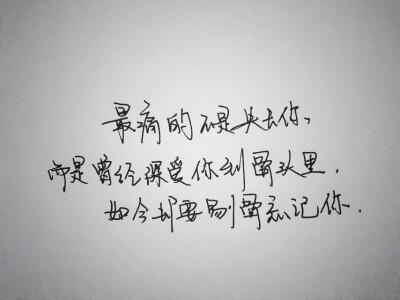 最痛的不是失去你、
而是曾经深爱你到骨头里，
如今却要剔骨忘记你.